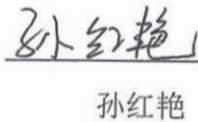 孙红艳
孙红艳